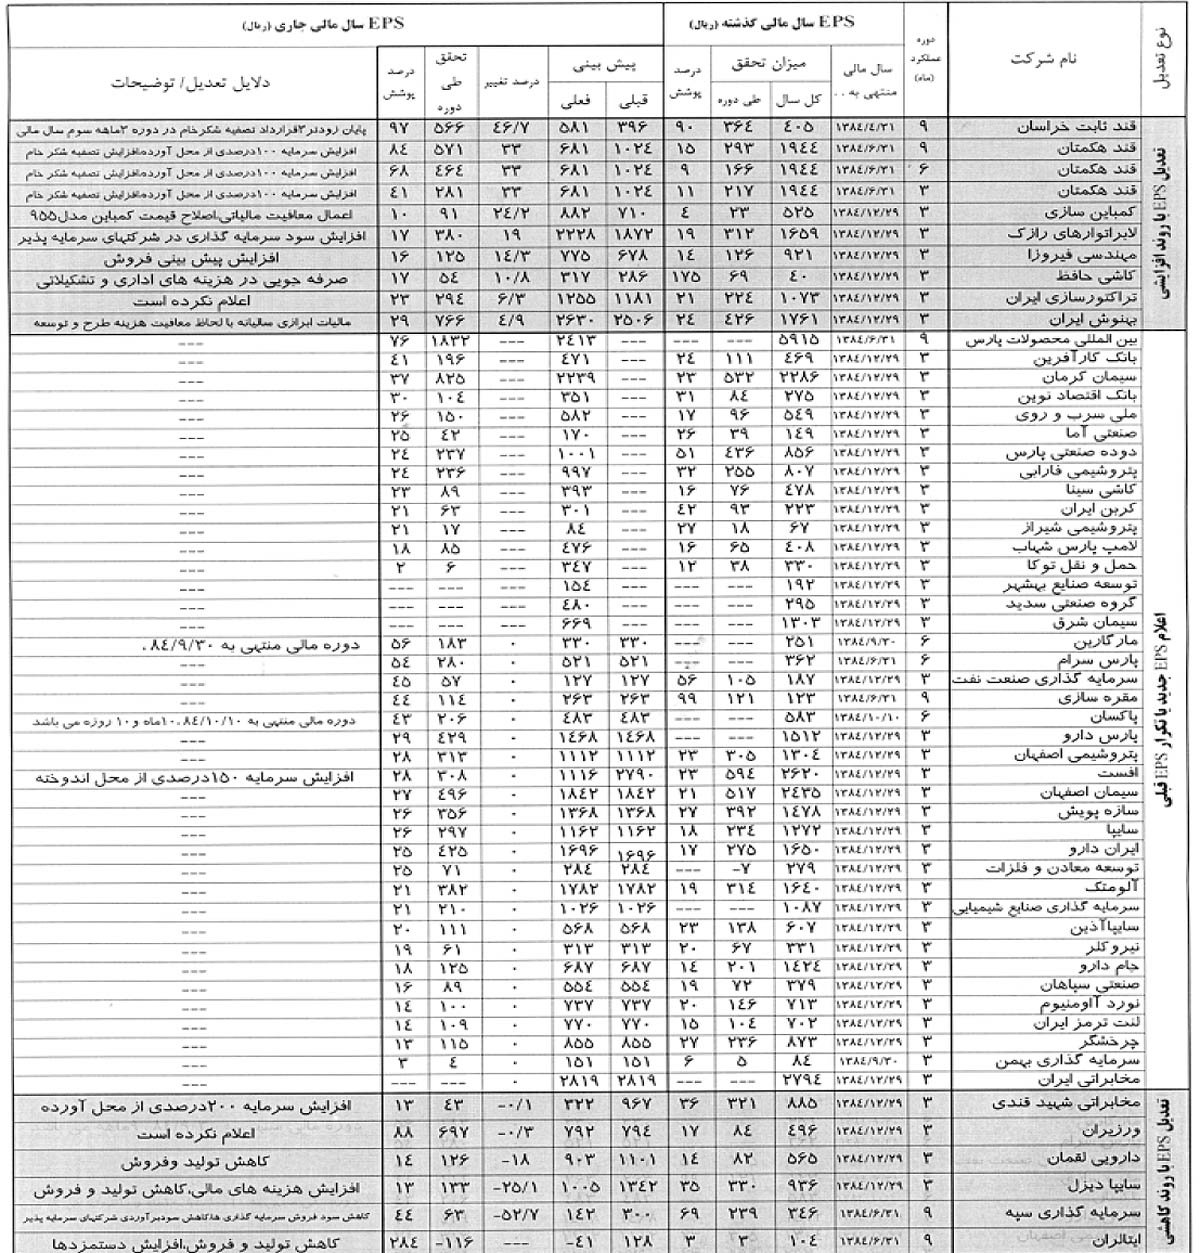 نوع تعدیل
نام شرکت
دوره عملکرد (ماه)
EPS سال مالی گذشته (ریال)
EPS سال مالی جاری (ریال)
سال مالی منتهی به ..
میزان تحقق
درصد پوشش
پیش بینی
درصد تغییر
تحقق طی دوره
درصد پوشش
دلایل تعدیل/ توضیحات
کل سال طی دوره قبلی فعلی
تعدیل EPS با روند افزایشی
قند ثابت خراسان ۹ ۱۳۸۴/۴/۳۱ ۴۰۵ ۳۶۴ ۹۰ ۳۹۶ ۵۸۱ ۴۶/۷ ۵۶۶ ۹۷ پایان زودتر ۳قرارداد تصفیه شکرخام در دوره ۳ماهه سوم سال مالی
قند هکمتان ۹ ۱۳۸۴/۶/۳۱ ۱۹۴۴ ۲۹۳ ۱۵ ۱۰۲۴ ۶۸۱ ۳۳ ۵۷۱ ۸۴ افزایش سرمایه ۱۰۰درصدی از محل آورده،افزایش تصفیه شکر خام
قند هکمتان ۶ ۱۳۸۴/۶/۳۱ ۱۹۴۴ ۱۶۶ ۹ ۱۰۲۴ ۶۸۱ ۳۳ ۴۶۴ ۶۸ افزایش سرمایه ۱۰۰درصدی از محل آورده،افزایش تصفیه شکر خام
قند هکمتان ۳ ۱۳۸۴/۶/۳۱ ۱۹۴۴ ۲۱۷ ۱۱ ۱۰۲۴ ۶۸۱ ۳۳ ۲۸۱ ۴۱ افزایش سرمایه ۱۰۰درصدی از محل آورده،افزایش تصفیه شکر خام
کمباین سازی ۳ ۱۳۸۴/۱۲/۲۹ ۵۲۵ ۲۳ ۴ ۷۱۰ ۸۸۲ ۲۴/۲ ۹۱ ۱۰ اعمال معافیت مالیاتی،اصلاح قیمت کمباین مدل۹۵۵
لابراتوارهای رازک ۳ ۱۳۸۴/۱۲/۲۹ ۱۶۵۹ ۳۱۲ ۱۹ ۱۸۷۲ ۲۲۲۸ ۱۹ ۳۸۰ ۱۷ افزایش سود سرمایه گذاری در شرکتهای سرمایه پذیر
مهندسی فیروزا ۳ ۱۳۸۴/۱۲/۲۹ ۹۲۱ ۱۲۶ ۱۴ ۶۷۸ ۷۷۵ ۱۴/۳ ۱۲۵ ۱۶ افزایش پیش بینی فروش
کاشی حافظ ۳ ۱۳۸۴/۱۲/۲۹ ۴۰ ۶۹ ۱۷۵ ۲۸۶ ۳۱۷ ۱۰/۸ ۵۴ ۱۷ صرفه جویی در هزینه های اداری و تشکیلاتی
تراکتورسازی ایران ۳ ۱۳۸۴/۱۲/۲۹ ۱۰۷۳ ۲۲۴ ۲۱ ۱۱۸۱ ۱۲۵۵ ۶/۳ ۲۹۴ ۲۳ اعلام نکرده است
بهنوش ایران ۳ ۱۳۸۴/۱۲/۲۹ ۱۷۶۱ ۴۲۶ ۲۴ ۲۵۰۶ ۲۶۳۰ ۴/۹ ۷۶۶ ۲۹ مالیات ابرازی سالیانه با لحاظ معافیت هزینه طرح و توسعه
اعلام EPS جدید یا تکرار EPS قبلی
بین المللی محصولات پارس ۹ ۱۳۸۴/۶/۳۱ ۵۹۱۵ --- --- --- ۲۴۱۳ --- ۱۸۳۲ ۷۶ ---
بانک کارآفرین ۳ ۱۳۸۴/۱۲/۲۹ ۴۶۹ ۱۱۱ ۲۴ --- ۴۷۱ --- ۱۹۶ ۴۱ ---
سیمان کرمان ۳ ۱۳۸۴/۱۲/۲۹ ۲۲۸۶ ۵۳۲ ۲۳ --- ۲۲۳۹ --- ۸۲۵ ۳۷ ---
بانک اقتصاد نوین ۳ ۱۳۸۴/۱۲/۲۹ ۲۷۵ ۸۴ ۳۱ --- ۳۵۱ --- ۱۰۴ ۳۰ ---
ملی سرب و روی ۳ ۱۳۸۴/۱۲/۲۹ ۵۴۹ ۹۶ ۱۷ --- ۵۸۲ --- ۱۵۰ ۲۶ ---
صنعتی آما ۳ ۱۳۸۴/۱۲/۲۹ ۱۴۹ ۳۹ ۲۶ --- ۱۷۰ --- ۴۲ ۲۵ ---
دوده صنعتی پارس ۳ ۱۳۸۴/۱۲/۲۹ ۸۵۶ ۴۳۶ ۵۱ --- ۱۰۰۱ --- ۲۳۷ ۲۴ ---
پتروشیمی فارابی ۳ ۱۳۸۴/۱۲/۲۹ ۸۰۷ ۲۵۵ ۳۲ --- ۹۹۷ --- ۲۳۶ ۲۴ ---
کاشی سینا ۳ ۱۳۸۴/۱۲/۲۹ ۴۷۸ ۷۶ ۱۶ --- ۳۹۳ --- ۸۹ ۲۳ ---
کربن ایران ۳ ۱۳۸۴/۱۲/۲۹ ۲۲۳ ۹۳ ۴۲ --- ۳۰۱ --- ۶۳ ۲۱ ---
پتروشیمی شیراز ۳ ۱۳۸۴/۱۲/۲۹ ۶۷ ۱۸ ۲۷ --- ۸۴ --- ۱۷ ۲۱ ---
لامپ پارس شهاب ۳ ۱۳۸۴/۱۲/۲۹ ۴۰۸ ۶۵ ۱۶ --- ۴۷۶ --- ۸۵ ۱۸ ---
حمل و نقل توکا ۳ ۱۳۸۴/۱۲/۲۹ ۳۳۰ ۳۸ ۱۲ --- ۳۴۷ --- ۶ ۲ ---
توسعه صنایع بهشهر ۳ ۱۳۸۴/۱۲/۲۹ ۱۹۲ --- --- --- ۱۵۴ --- --- --- ---
گروه صنعتی سدید ۳ ۱۳۸۴/۱۲/۲۹ ۲۹۵ --- --- --- ۴۸۰ --- --- --- ---
سیمان شرق ۳ ۱۳۸۴/۱۲/۲۹ ۱۳۰۳ --- --- --- ۶۶۹ --- --- --- ---
مارگارین ۶ ۱۳۸۴/۹/۳۰ ۲۵۱ --- --- ۳۳۰ ۳۳۰ ۰ ۱۸۳ ۵۶ دوره مالی منتهی به ۸۴/۹/۳۰.
پارس سرام ۶ ۱۳۸۴/۶/۳۱ ۳۶۲ --- --- ۵۲۱ ۵۲۱ ۰ ۲۸۰ ۵۴ ---
سرمایه گذاری صنعت نفت ۳ ۱۳۸۴/۱۲/۲۹ ۱۸۷ ۱۰۵ ۵۶ ۱۲۷ ۱۲۷ ۰ ۵۷ ۴۵ ---
مقره سازی ۹ ۱۳۸۴/۶/۳۱ ۱۲۳ ۱۲۱ ۹۹ ۲۶۳ ۲۶۳ ۰ ۱۱۴ ۴۴ ---
پاکسان ۶ ۱۳۸۴/۱۰/۱۰ ۵۸۳ --- --- ۴۸۳ ۴۸۳ ۰ ۲۰۶ ۴۳ دوره مالی منتهی به ۸۴/۱۰/۱۰، ۱۰ماه و۱۰ روزه می باشد
پارس دارو ۳ ۱۳۸۴/۱۲/۲۹ ۱۵۱۲ --- --- ۱۴۶۸ ۱۴۶۸ ۰ ۴۲۹ ۲۹ ---
پتروشیمی اصفهان ۳ ۱۳۸۴/۱۲/۲۹ ۱۳۰۴ ۳۰۵ ۲۳ ۱۱۱۲ ۱۱۱۲ ۰ ۳۱۳ ۲۸ ---
افست ۳ ۱۳۸۴/۱۲/۲۹ ۲۶۲۰ ۵۹۴ ۲۳ ۲۷۹۰ ۱۱۱۶ ۰ ۳۰۸ ۲۸ افزایش سرمایه ۱۵۰درصدی از محل اندوخته
سیمان اصفهان ۳ ۱۳۸۴/۱۲/۲۹ ۲۴۳۵ ۵۱۷ ۲۱ ۱۸۴۲ ۱۸۴۲ ۰ ۴۹۶ ۲۷ ---
سازه پویش ۳ ۱۳۸۴/۱۲/۲۹ ۱۴۷۸ ۳۹۲ ۲۷ ۱۳۶۸ ۱۳۶۸ ۰ ۳۵۶ ۲۶ ---
سایپا ۳ ۱۳۸۴/۱۲/۲۹ ۱۲۷۲ ۲۳۴ ۱۸ ۱۱۶۲ ۱۱۶۲ ۰ ۲۹۷ ۲۶ ---
ایران دارو ۳ ۱۳۸۴/۱۲/۲۹ ۱۶۵۰ ۲۷۵ ۱۷ ۱۶۹۶ ۱۶۹۶ ۰ ۴۲۵ ۲۵ ---
توسعه معادن و فلزات ۳ ۱۳۸۴/۱۲/۲۹ ۲۷۹ -۷ --- ۲۸۴ ۲۸۴ ۰ ۷۱ ۲۵ ---
آلومتک ۳ ۱۳۸۴/۱۲/۲۹ ۱۶۴۰ ۳۱۴ ۱۹ ۱۷۸۲ ۱۷۸۲ ۰ ۳۸۲ ۲۱ ---
سرمایه گذاری صنایع شیمیایی ۳ ۱۳۸۴/۱۲/۲۹ ۱۰۸۷ --- --- ۱۰۲۶ ۱۰۲۶ ۰ ۲۱۰ ۲۱ ---
سایپاآذین ۳ ۱۳۸۴/۱۲/۲۹ ۶۰۷ ۱۳۸ ۲۳ ۵۶۸ ۵۶۸ ۰ ۱۱۱ ۲۰ ---
نیرو کلر ۳ ۱۳۸۴/۱۲/۲۹ ۳۳۱ ۶۷ ۲۰ ۳۱۳ ۳۱۳ ۰ ۶۱ ۱۹ ---
جام دارو ۳ ۱۳۸۴/۱۲/۲۹ ۱۴۲۴ ۲۰۱ ۱۴ ۶۸۷ ۶۸۷ ۰ ۱۲۵ ۱۸ ---
صنعتی سپاهان ۳ ۱۳۸۴/۱۲/۲۹ ۳۷۹ ۷۲ ۱۹ ۵۵۴ ۵۵۴ ۰ ۸۹ ۱۶ ---
نورد آلومنیوم ۳ ۱۳۸۴/۱۲/۲۹ ۷۱۳ ۱۴۶ ۲۰ ۷۳۷ ۷۳۷ ۰ ۱۰۰ ۱۴ ---
لنت ترمز ایران ۳ ۱۳۸۴/۱۲/۲۹ ۷۰۲ ۱۰۴ ۱۵ ۷۷۰ ۷۷۰ ۰ ۱۰۹ ۱۴ ---
چرخشگر ۳ ۱۳۸۴/۱۲/۲۹ ۸۷۳ ۲۳۶ ۲۷ ۸۵۵ ۸۵۵ ۰ ۱۱۵ ۱۳ ---
سرمایه گذاری بهمن ۳ ۱۳۸۴/۹/۳۰ ۸۴ ۵ ۶ ۱۵۱ ۱۵۱ ۰ ۴ ۳ ---
مخابراتی ایران ۳ ۱۳۸۴/۱۲/۲۹ ۲۷۹۴ --- --- ۲۸۱۹ ۲۸۱۹ ۰ --- --- ---
تعدیل EPS با روند کاهشی
مخابراتی شهید قندی ۳ ۱۳۸۴/۱۲/۲۹ ۸۸۵ ۳۲۱ ۳۶ ۹۶۷ ۳۲۲ -۰/۱ ۴۳ ۱۳ افزایش سرمایه ۲۰۰درصدی از محل آورده
ورزیران ۳ ۱۳۸۴/۱۲/۲۹ ۴۹۶ ۸۴ ۱۷ ۷۹۴ ۷۹۲ -۰/۳ ۶۹۷ ۸۸ اعلام نکرده است
دارویی لقمان ۳ ۱۳۸۴/۱۲/۲۹ ۵۶۵ ۸۲ ۱۴ ۱۱۰۱ ۹۰۳ -۱۸ ۱۲۶ ۱۴ کاهش تولید وفروش
سایپا دیزل ۳ ۱۳۸۴/۱۲/۲۹ ۹۳۶ ۳۳۰ ۳۵ ۱۳۴۲ ۱۰۰۵ -۲۵/۱ ۱۳۳ ۱۳ افزایش هزینه های مالی،کاهش تولید و فروش
سرمایه گذاری سپه ۹ ۱۳۸۴/۶/۳۱ ۳۴۶ ۲۳۹ ۶۹ ۳۰۰ ۱۴۲ -۵۲/۷ ۶۳ ۴۴ کاهش سود فروش سرمایه گذاری ها،کاهش سودبرآوردی شرکتهای سرمایه پذیر
ایتالران ۹ ۱۳۸۴/۶/۳۱ ۱۰۴ ۳ ۳ ۱۲۸ -۴۱ --- -۱۱۶ ۲۸۴ کاهش تولید و فروش،افزایش دستمزدها